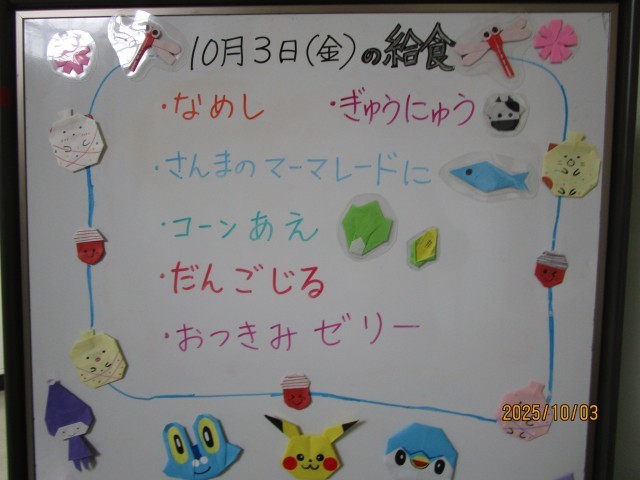 10月3日(金)の給食
・なめし ・ぎゅうにゅう
・さんまのマーマレードに
・コーンあえ
・だんごじる
・おつきみゼリー
2025/10/03